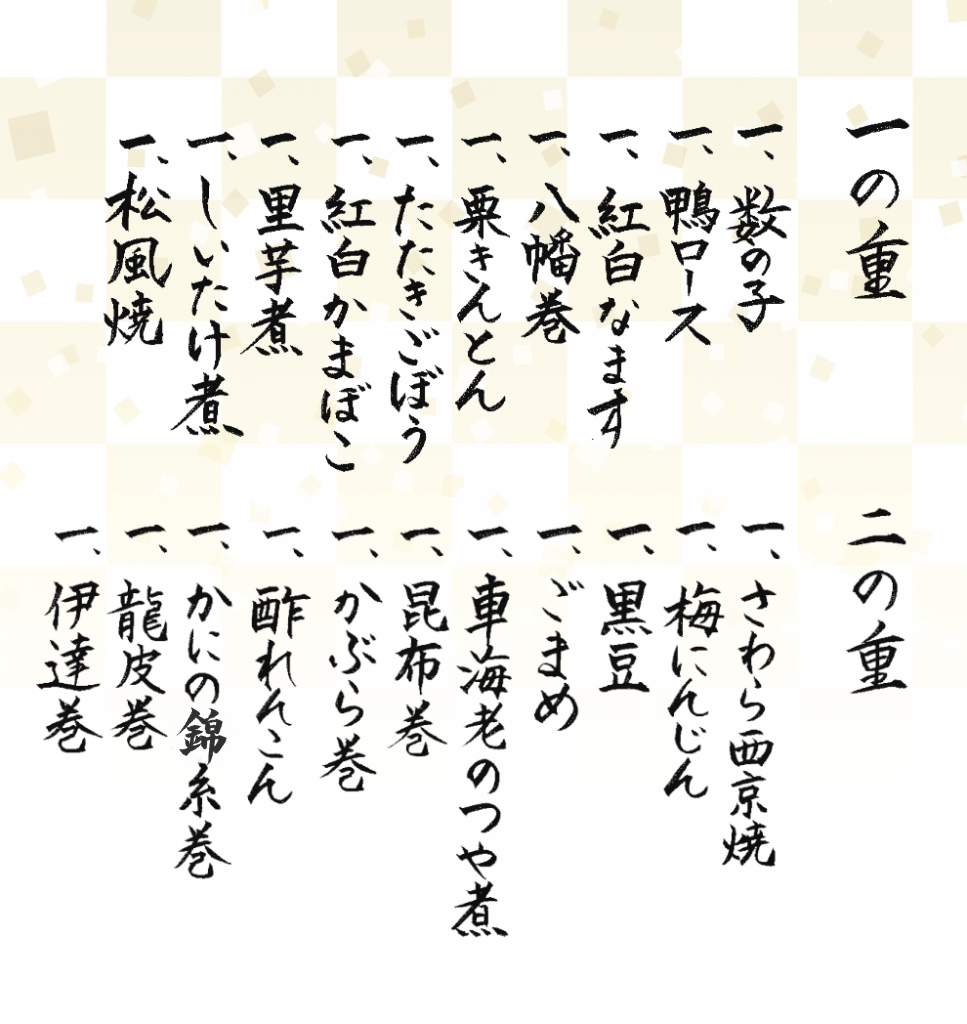 一の重
一、数の子
一、鴨ロース
一、紅白なます
一、八幡巻
一、栗きんとん
一、たたきごぼう
一、紅白かまぼこ
一、里芋煮
一、しいたけ煮
一、松風焼
二の重
一、さわら西京焼
一、梅にんじん
一、黒豆
一、ごまめ
一、車海老のつや煮
一、昆布巻
一、かぶら巻
一、酢れんこん
一、かにの錦糸巻
一、龍皮巻
一、伊達巻